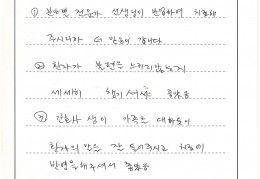 ① 분야별 전문가 선생님이 분담하여 치료해
주시니까 더 믿음이 갑니다
② 환자가 불편을 느끼지 않는지
세세히 챙겨주셔서 좋았음
③ 간호사 쌤이 가족은 대하듯이
환자의 말을 잘 들어주시고 치료에
반영을 해주셔서 좋았음